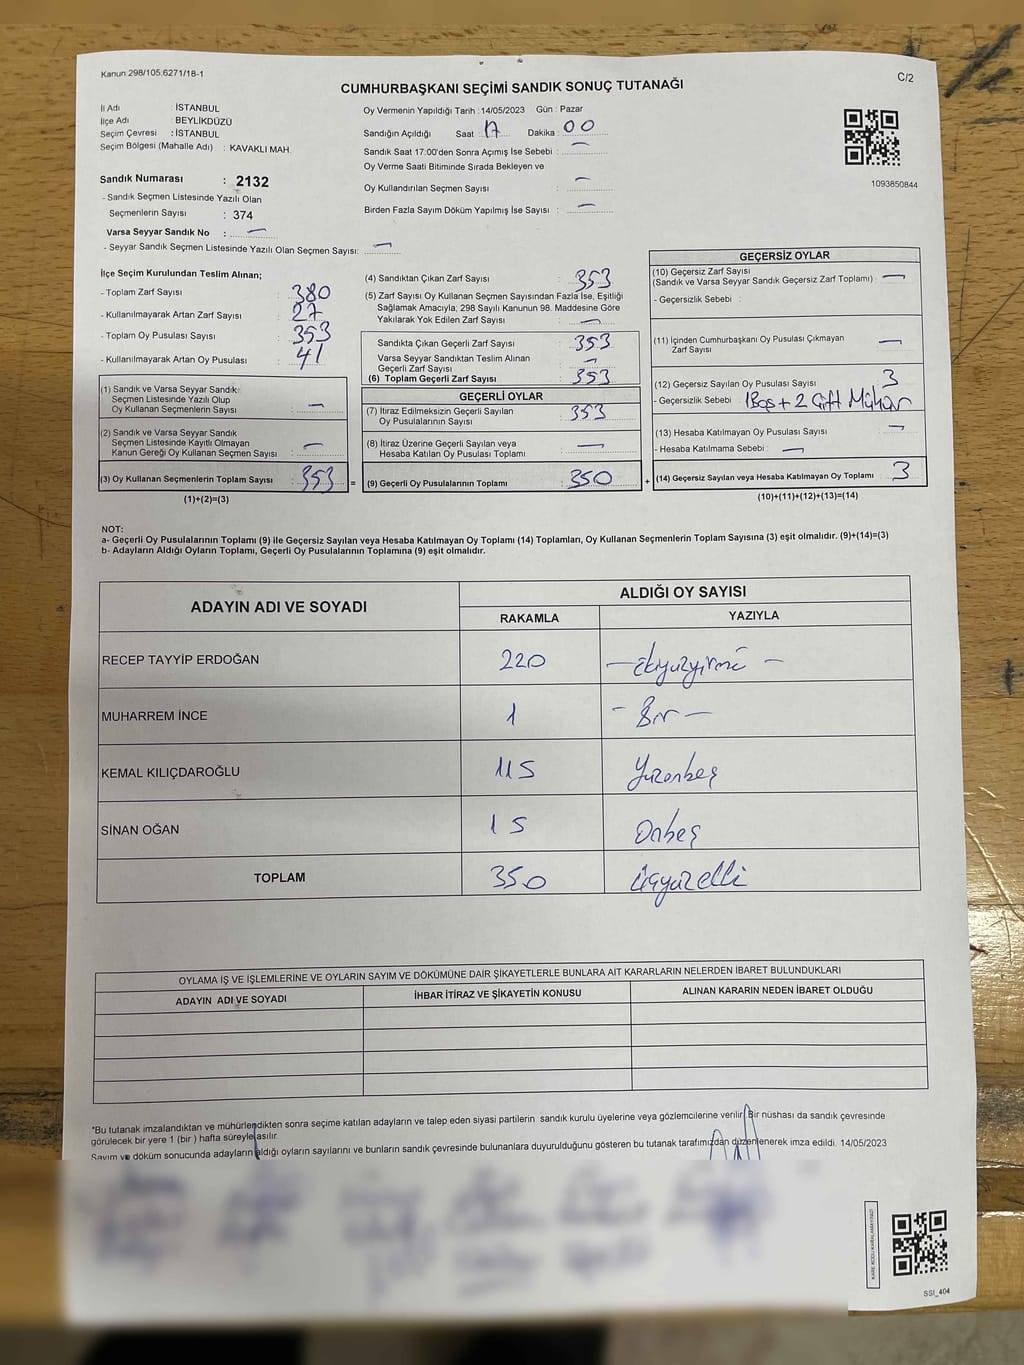 Kanun 298/105,6271/18-1
C/2
CUMHURBAŞKANI SEÇİMİ SANDIK SONUÇ TUTANAĞI
İl Adı : İSTANBUL
İlçe Adı : BEYLİKDÜZÜ
Seçim Çevresi : İSTANBUL
Seçim Bölgesi (Mahalle Adı) : KAVAKLI MAH.
Sandık Numarası : 2132
- Sandık Seçmen Listesinde Yazılı Olan
Seçmenlerin Sayısı : 374
Varsa Seyyar Sandık No : —
- Seyyar Sandık Seçmen Listesinde Yazılı Olan Seçmen Sayısı: —
Oy Vermenin Yapıldığı Tarih : 14/05/2023 Gün : Pazar
Sandığın Açıldığı Saat : 17 Dakika : 00
Sandık Saat 17:00'den Sonra Açımış İse Sebebi : —
Oy Verme Saati Bitiminde Sırada Bekleyen ve
Oy Kullandırılan Seçmen Sayısı : —
Birden Fazla Sayım Döküm Yapılmış İse Sayısı : —
1093850844
İlçe Seçim Kurulundan Teslim Alınan;
- Toplam Zarf Sayısı : 380
- Kullanılmayarak Artan Zarf Sayısı : 27
- Toplam Oy Pusulası Sayısı : 353
- Kullanılmayarak Artan Oy Pusulası : 41
(1) Sandık ve Varsa Seyyar Sandık
Seçmen Listesinde Yazılı Olup
Oy Kullanan Seçmenlerin Sayısı : —
(2) Sandık ve Varsa Seyyar Sandık
Seçmen Listesinde Kayıtlı Olmayan
Kanun Gereği Oy Kullanan Seçmen Sayısı : —
(3) Oy Kullanan Seçmenlerin Toplam Sayısı : 353 =
(1)+(2)=(3)
(4) Sandıktan Çıkan Zarf Sayısı : 353
(5) Zarf Sayısı Oy Kullanan Seçmen Sayısından Fazla İse, Eşitliği
Sağlamak Amacıyla; 298 Sayılı Kanunun 98. Maddesine Göre
Yakılarak Yok Edilen Zarf Sayısı : —
Sandıkta Çıkan Geçerli Zarf Sayısı : 353
Varsa Seyyar Sandıktan Teslim Alınan
Geçerli Zarf Sayısı : —
(6) Toplam Geçerli Zarf Sayısı : 353
GEÇERLİ OYLAR
(7) İtiraz Edilmeksizin Geçerli Sayılan
Oy Pusulalarının Sayısı : 353
(8) İtiraz Üzerine Geçerli Sayılan veya
Hesaba Katılan Oy Pusulası Toplamı : —
(9) Geçerli Oy Pusulalarının Toplamı : 350 +
GEÇERSİZ OYLAR
(10) Geçersiz Zarf Sayısı
(Sandık ve Varsa Seyyar Sandık Geçersiz Zarf Toplamı) : —
- Geçersizlik Sebebi :
(11) İçinden Cumhurbaşkanı Oy Pusulası Çıkmayan
Zarf Sayısı : —
(12) Geçersiz Sayılan Oy Pusulası Sayısı : 3
- Geçersizlik Sebebi : 1Boş + 2 Çift Mühür
(13) Hesaba Katılmayan Oy Pusulası Sayısı : —
- Hesaba Katılmama Sebebi : —
(14) Geçersiz Sayılan veya Hesaba Katılmayan Oy Toplamı : 3
(10)+(11)+(12)+(13)=(14)
NOT:
a- Geçerli Oy Pusulalarının Toplamı (9) ile Geçersiz Sayılan veya Hesaba Katılmayan Oy Toplamı (14) Toplamları, Oy Kullanan Seçmenlerin Toplam Sayısına (3) eşit olmalıdır. (9)+(14)=(3)
b- Adayların Aldığı Oyların Toplamı, Geçerli Oy Pusulalarının Toplamına (9) eşit olmalıdır.
ADAYIN ADI VE SOYADI
ALDIĞI OY SAYISI
RAKAMLA YAZIYLA
RECEP TAYYİP ERDOĞAN 220 — ikiyüzyirmi —
MUHARREM İNCE 1 - Bir —
KEMAL KILIÇDAROĞLU 115 Yüzonbeş
SİNAN OĞAN 15 Onbeş
TOPLAM 350 üçyüzelli
OYLAMA İŞ VE İŞLEMLERİNE VE OYLARIN SAYIM VE DÖKÜMÜNE DAİR ŞİKAYETLERLE BUNLARA AİT KARARLARIN NELERDEN İBARET BULUNDUKLARI
ADAYIN ADI VE SOYADI İHBAR İTİRAZ VE ŞİKAYETİN KONUSU ALINAN KARARIN NEDEN İBARET OLDUĞU
*Bu tutanak imzalandıktan ve mühürlendikten sonra seçime katılan adayların ve talep eden siyasi partilerin sandık kurulu üyelerine veya gözlemcilerine verilir. Bir nüshası da sandık çevresinde
görülecek bir yere 1 (bir ) hafta süreyle asılır.
Sayım ve döküm sonucunda adayların aldığı oyların sayılarını ve bunların sandık çevresinde bulunanlara duyurulduğunu gösteren bu tutanak tarafımızdan düzenlenerek imza edildi. 14/05/2023
SSI_404